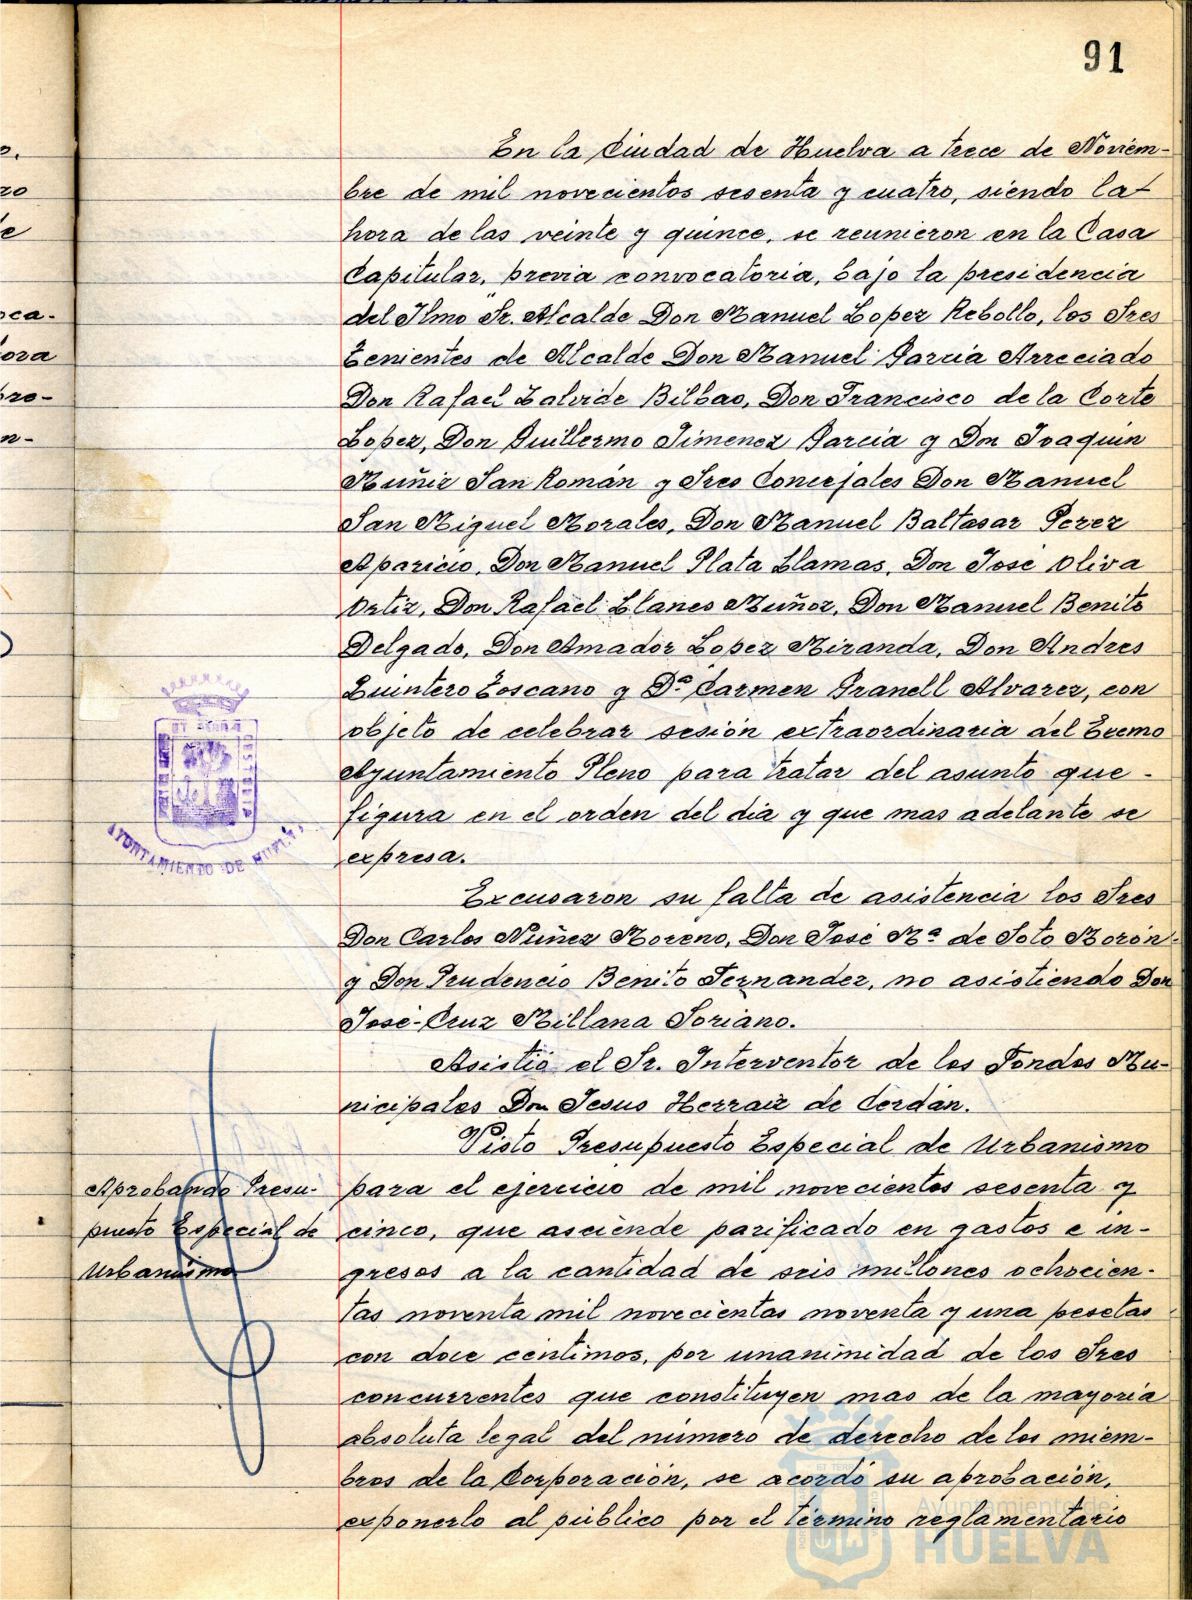 91
En la Ciudad de Huelva a trece de Noviem-
bre de mil novecientos sesenta y cuatro, siendo la
hora de las veinte y quince, se reunieron en la Casa
Capitular, previa convocatoria, bajo la presidencia
del Ilmo Sr. Alcalde Don Manuel Lopez Rebollo, los Sres
Tenientes de Alcalde Don Manuel Garcia Arreciado
Don Rafael Zalvide Bilbao, Don Francisco de la Corte
Lopez, Don Guillermo Jimenez Garcia y Don Joaquin
Muñiz San Román y Sres Concejales Don Manuel
San Miguel Morales, Don Manuel Baltasar Perez
Aparicio, Don Manuel Plata Llamas, Don José Oliva
Ortiz, Don Rafael Llanes Muñoz, Don Manuel Benito
Delgado, Don Amador Lopez Miranda, Don Andres
Quintero Toscano y Dª Carmen Granell Alvarez, con
objeto de celebrar sesión extraordinaria del Excmo
Ayuntamiento Pleno para tratar del asunto que
figura en el orden del dia y que mas adelante se
expresa.
Excusaron su falta de asistencia los Sres
Don Carlos Nuñez Moreno, Don José Mª de Soto Morón
y Don Prudencio Benito Fernandez, no asistiendo Don
José-Cruz Millana Soriano.
Asistió el Sr. Interventor de los Fondos Mu-
nicipales Don Jesus Herraiz de Cerdán.
Visto Presupuesto Especial de Urbanismo
para el ejercicio de mil novecientos sesenta y
cinco, que asciende parificado en gastos e in-
gresos a la cantidad de seis millones ochocien-
tas noventa mil novecientas noventa y una pesetas
con doce centimos, por unanimidad de los Sres
concurrentes que constituyen mas de la mayoria
absoluta legal del número de derecho de los miem-
bros de la Corporación, se acordó su aprobación,
exponerlo al público por el término reglamentario
Aprobando Presu-
puesto Especial de
Urbanismo
AYUNTAMIENTO DE HUELVA
Ayuntamiento de
HUELVA